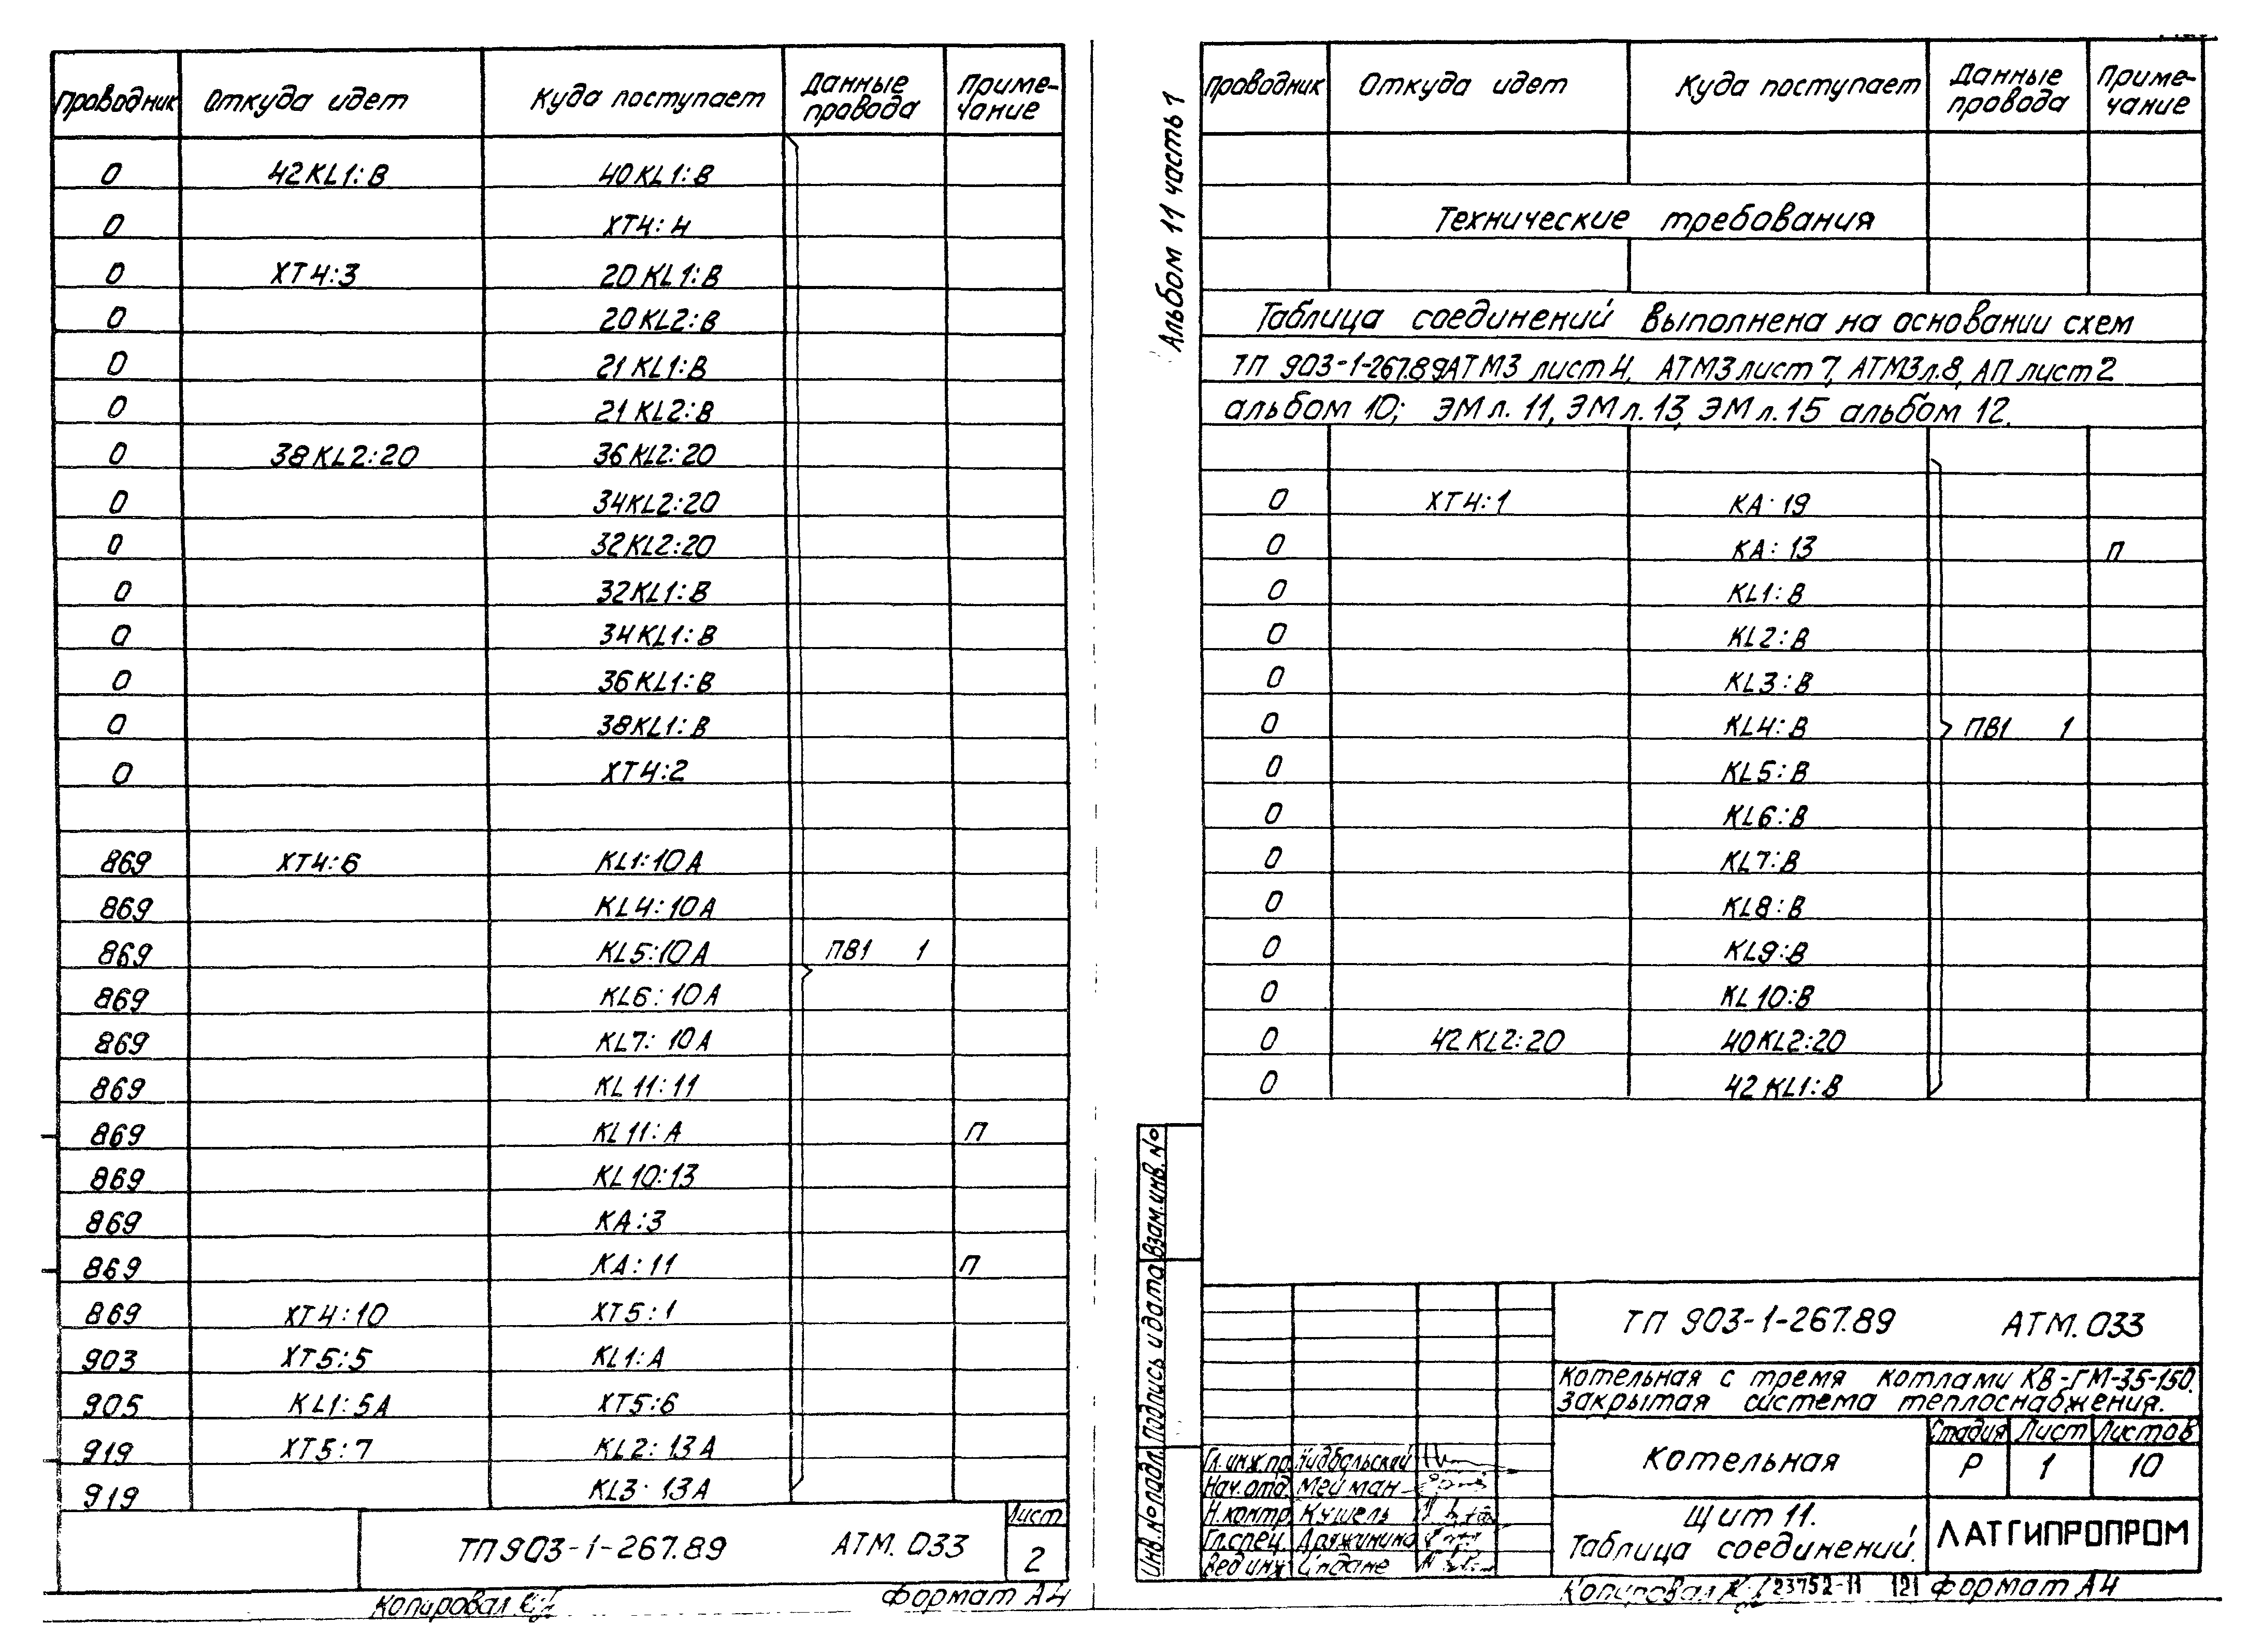 Проводник Откуда идет Куда поступает Данные провода Приме-чание
0 42KL1:В 40KL1:В
0 XT4:4
0 XT4:3 20KL1:В
0 20KL2:В
0 21KL1:В
0 21KL2:В
0 38KL2:20 36KL2:20
0 34KL2:20
0 32KL2:20
0 32KL1:В
0 34KL1:В
0 36KL1:В
0 38KL1:В
0 XT4:2
869 XT4:6 KL1:10А
869 KL4:10А
869 KL5:10А ПВ1 1
869 KL6:10А
869 KL7:10А
869 KL11:11
869 KL11:А П
869 KL10:13
869 КА:3
869 КА:11 П
869 XT4:10 XT5:1
903 XT5:5 KL1:А
905 KL1:5А XT5:6
919 XT5:7 KL2:13А
919 KL3:13А
ТП 903-1-267.89 АТМ.033
Лист
2
Копировал
Формат А4
Альбом 11 часть 1
Проводник Откуда идет Куда поступает Данные провода Приме-чание
Технические требования
Таблица соединений выполнена на основании схем
ТП 903-1-267.89АТМ3 лист 4, АТМ3 лист 7, АТМ3 л.8, АП лист 2
альбом 10; ЭМ л. 11, ЭМ л. 13, ЭМ л. 15 альбом 12.
0 XT4:1 КА:19
0 КА:13 П
0 KL1:В
0 KL2:В
0 KL3:В
0 KL4:В ПВ1 1
0 KL5:В
0 KL6:В
0 KL7:В
0 KL8:В
0 KL9:В
0 KL10:В
0 42KL2:20 40KL2:20
0 42KL1:В
Инв. № подл. Подпись и дата Взам. инв. №
ТП 903-1-267.89 АТМ.033
Котельная с тремя котлами КВ-ГМ-35-150.
Закрытая система теплоснабжения.
Котельная
Стадия Лист Листов
Р 1 10
Гл.инж.пр.
Нач.отд. Мейман
Н.контр. Кушель
Гл.спец. Дряжинина
Вед.инж. Синдане
Щит 11.
Таблица соединений.
ЛАТГИПРОПРОМ
Копировал 23752-11 121 Формат А4